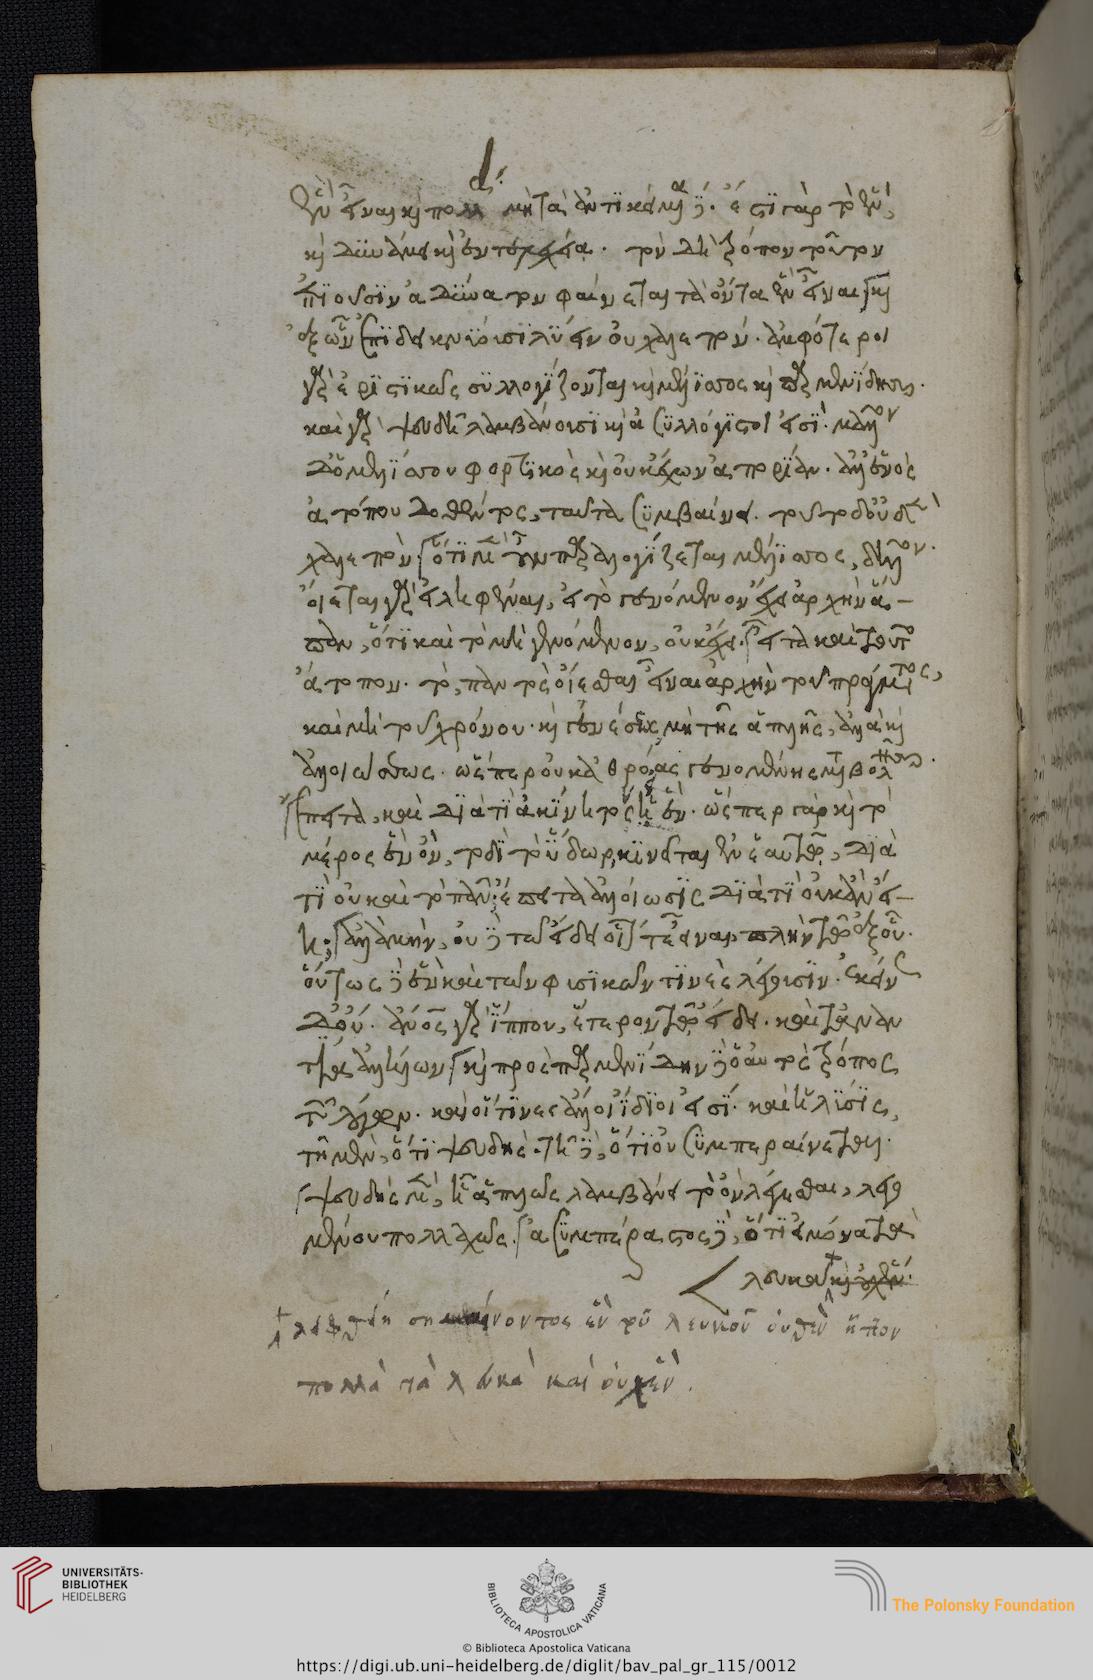 δ´
ἓν εἶναι καὶ πολλά, μὴ τὰ ἀντικείμενα δέ· ἔστι γὰρ τὸ ἓν,
καὶ δυνάμει καὶ ἐντελεχείᾳ. τόν δε τρόπον τοῦτον
ἐπιοῦσιν ἀδύνατον φαίνεται τὰ ὄντα ἓν εἶναι· καὶ
ἐξ ὧν ἐπιδεικνύουσι λύειν οὐ χαλεπόν. ἀμφότεροι
γὰρ ἐριστικῶς συλλογίζονται καὶ μέλισσος καὶ παρμενίδης.
καὶ γὰρ ψευδῆ λαμβάνουσι καὶ ἀσυλλόγιστοί εἰσι. μᾶλλον
δ' ὁ μελίσσου φορτικὸς καὶ οὐκ ἔχων ἀπορίαν. ἀλλ' ἑνὸς
ἀτόπου δοθέντος, ταῦτα συμβαίνει. τοῦτο δ' οὐδὲν
χαλεπόν. ὅτι μὲν οὖν παραλογίζεται μέλισσος, δῆλον.
οἴεται γὰρ εἰληφέναι, εἰ τὸ γενόμενον ἔχει ἀρχὴν ἅ-
παν, ὅτι καὶ τὸ μὴ γενόμενον, οὐκ ἔχει. εἶτα καὶ τοῦτο
ἄτοπον. τὸ, παντὸς οἴεσθαι εἶναι ἀρχὴν τοῦ πράγματος,
καὶ μὴ τοῦ χρόνου. καὶ γενέσεως μὴ τῆς ἁπλῆς, ἀλλὰ καὶ
ἀλλοιώσεως. ὥσπερ οὐκ ἀθρόας γενομένης μεταβολῆς.
ἔπειτα, καὶ διὰ τί ἀκίνητος εἰ ἕν. ὥσπερ γὰρ καὶ τὸ
μέρος ἓν ὂν, τοδὶ τὸ ὕδωρ, κινεῖται ἐν ἑαυτῷ, διὰ
τί οὐ καὶ τὸ πᾶν; ἔπειτα ἀλλοίωσις διὰ τί οὐκ ἂν εἴ-
η; ἀλλὰ μὴν, οὐδὲ τῷ εἴδει οἷόν τε ἓν εἶναι, πλὴν τῷ ἐξ οὗ.
οὕτως δὲ ἓν καὶ τῶν φυσικῶν τινὲς λέγουσιν. ἐκείνως
δ' οὔ. ἄνθρωπος γὰρ ἵππου, ἕτερον τῷ εἴδει. καὶ τἀναν
τία ἀλλήλων. καὶ πρὸς παρμενίδην δὲ ὁ αὐτὸς τρόπος
τῶν λόγων. καὶ εἴ τινες ἄλλοι ἴδιοί εἰσι. καὶ ἡ λύσις,
τῇ μὲν, ὅτι ψευδής. τῇ δὲ, ὅτι οὐ συμπεραίνεται.
ψευδὴς μὲν, ᾗ ἁπλῶς λαμβάνει τὸ ὂν λέγεσθαι, λεγο
μένου πολλαχῶς. ἀσυμπέραστος δὲ, ὅτι εἰ μόνα τὰ
λευκὰ καὶ οὐχ ἕν.
ληφθείη σημαίνοντος ἓν τοῦ λευκοῦ οὐθὲν ἧττον
πολλὰ τὰ λευκὰ καὶ οὐχ ἕν.
UNIVERSITÄTS-
BIBLIOTHEK
HEIDELBERG
BIBLIOTECA APOSTOLICA VATICANA
The Polonsky Foundation
© Biblioteca Apostolica Vaticana
https://digi.ub.uni-heidelberg.de/diglit/bav_pal_gr_115/0012